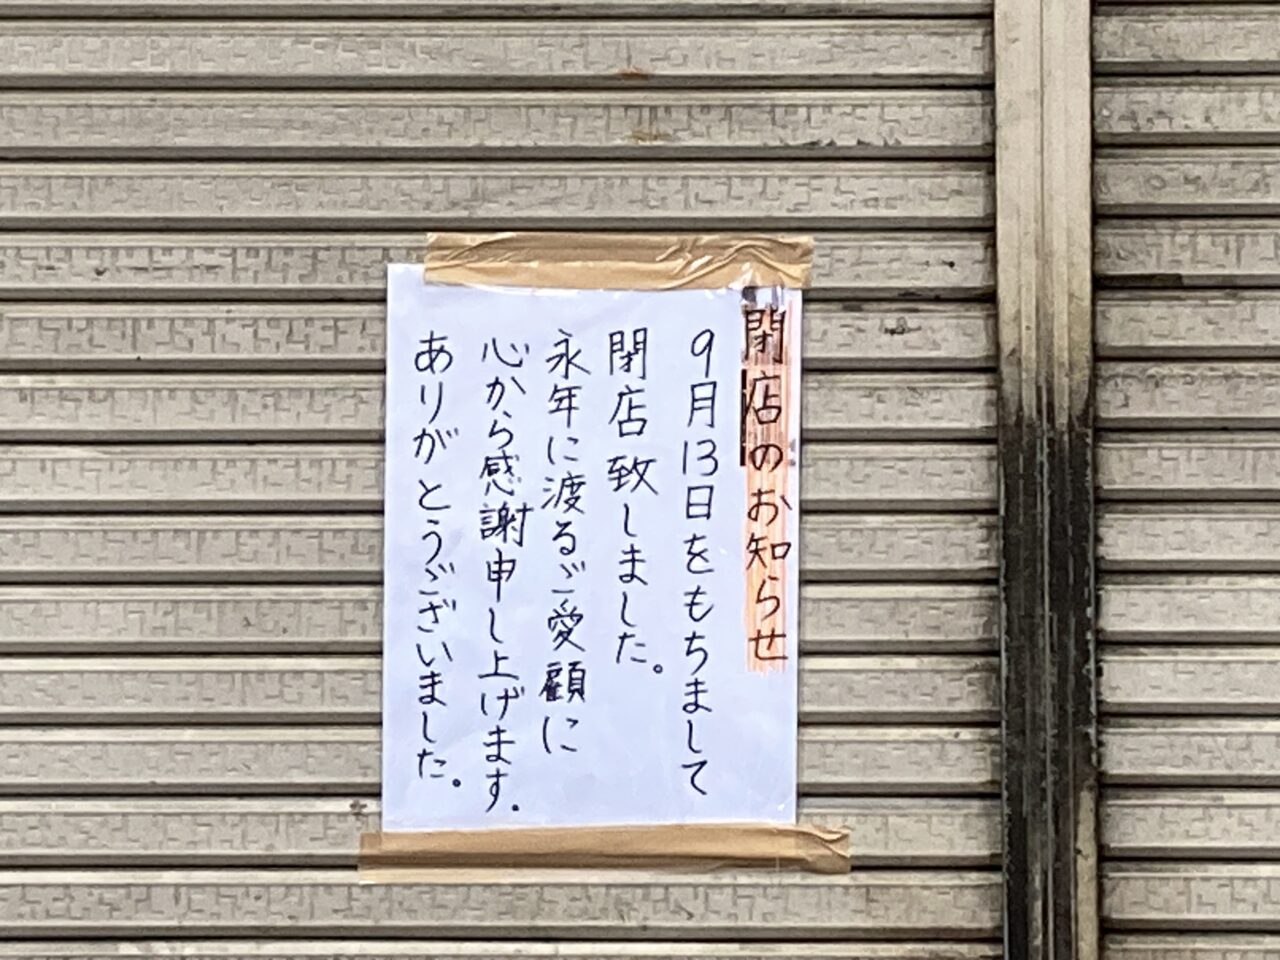 閉店のお知らせ
9月13日をもちまして
閉店致しました。
永年に渡るご愛顧に
心から感謝申し上げます.
ありがとうございました。